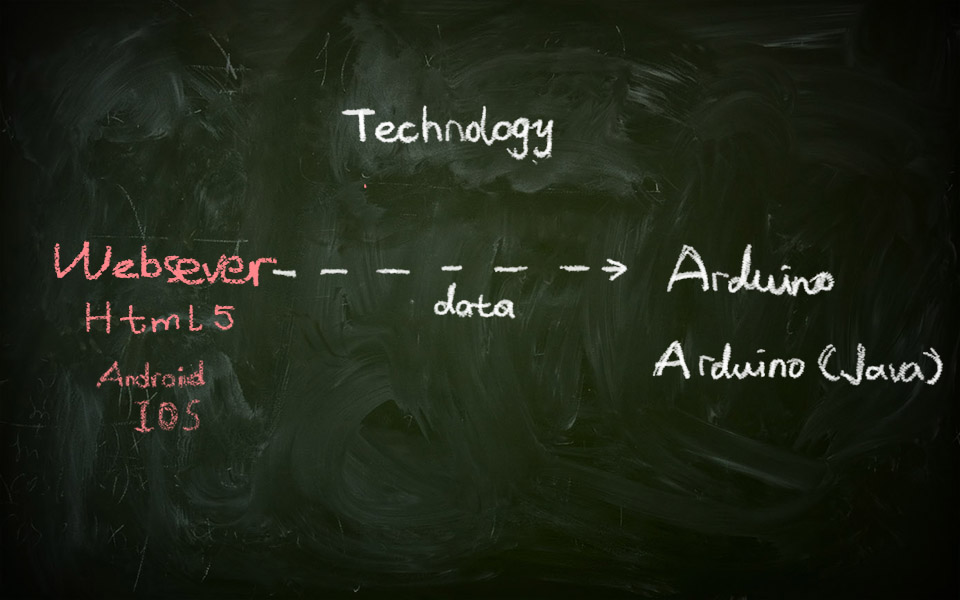 Technology
Websever
data
Arduino
Html5
Arduino (Java)
Android
IOS